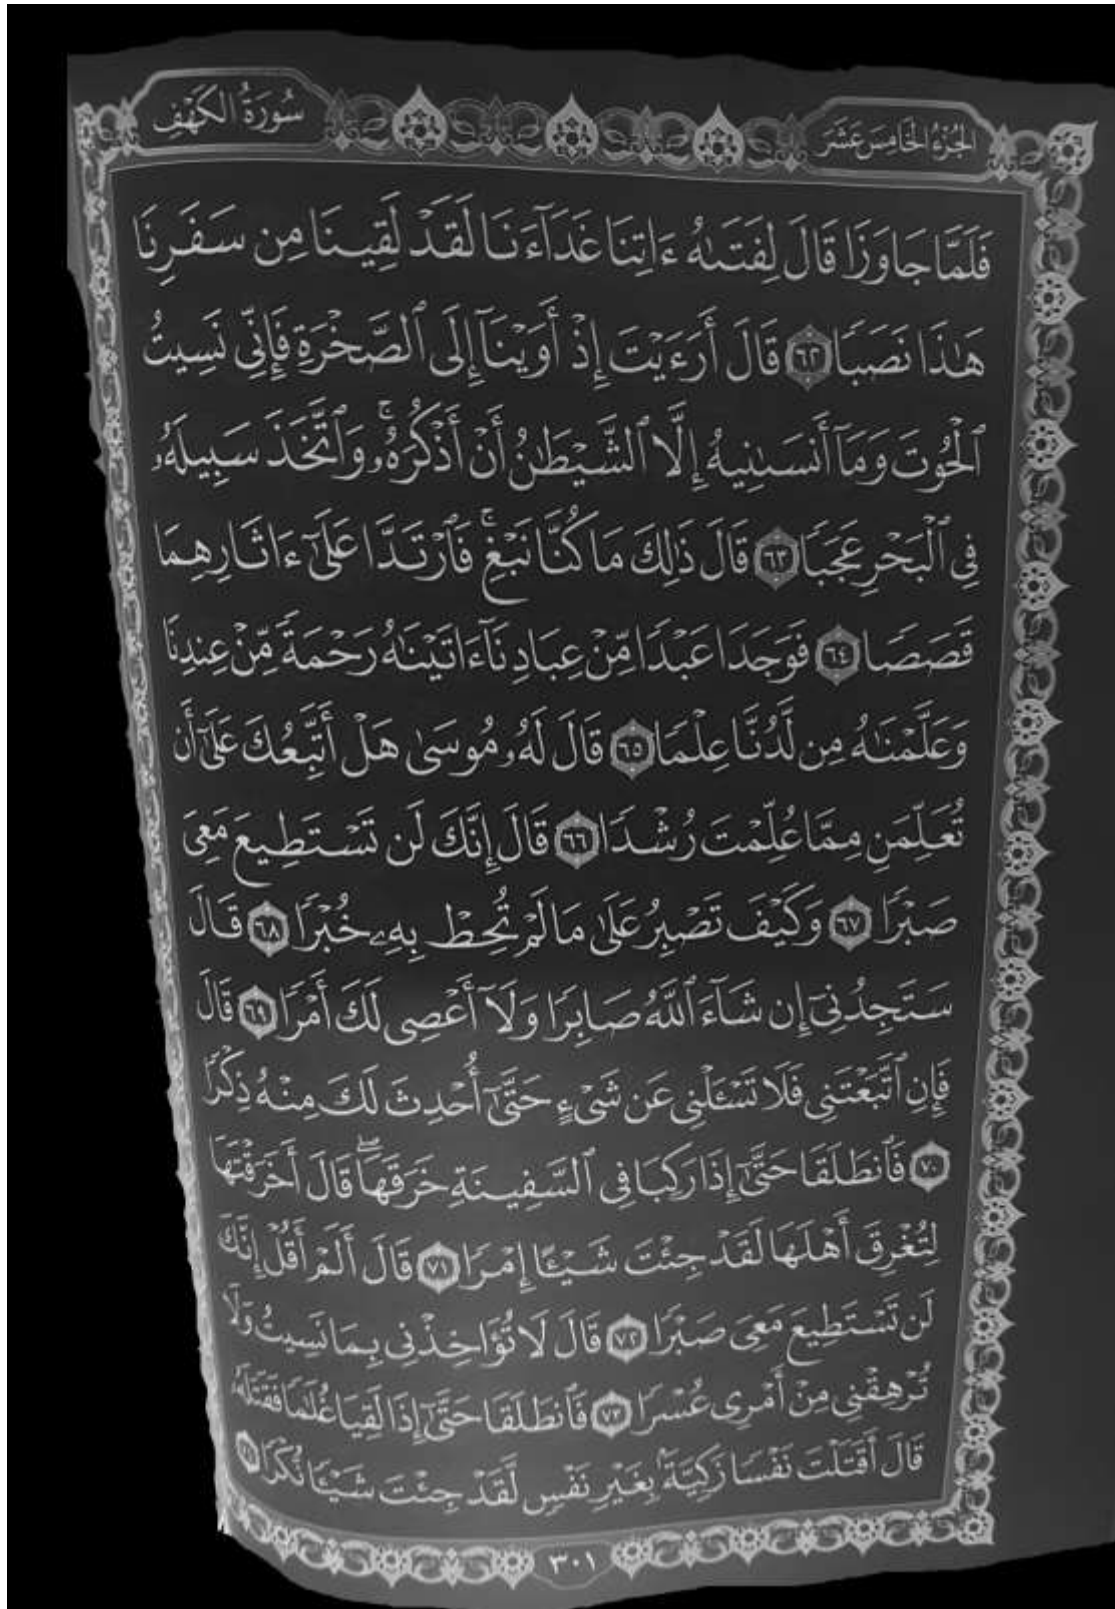 الجُزْءُ الخَامِسَ عَشَرَ
سُورَةُ الكَهْفِ
فَلَمَّا جَاوَزَا قَالَ لِفَتَىٰهُ ءَاتِنَا غَدَآءَنَا لَقَدْ لَقِينَا مِن سَفَرِنَا
هَٰذَا نَصَبٗا ٦٢ قَالَ أَرَءَيْتَ إِذْ أَوَيْنَآ إِلَى ٱلصَّخْرَةِ فَإِنِّي نَسِيتُ
ٱلْحُوتَ وَمَآ أَنسَىٰنِيهُ إِلَّا ٱلشَّيْطَٰنُ أَنْ أَذْكُرَهُۥۚ وَٱتَّخَذَ سَبِيلَهُۥ
فِي ٱلْبَحْرِ عَجَبٗا ٦٣ قَالَ ذَٰلِكَ مَا كُنَّا نَبْغِۚ فَٱرْتَدَّا عَلَىٰٓ ءَاثَارِهِمَا
قَصَصٗا ٦٤ فَوَجَدَا عَبْدٗا مِّنْ عِبَادِنَآ ءَاتَيْنَٰهُ رَحْمَةٗ مِّنْ عِندِنَا
وَعَلَّمْنَٰهُ مِن لَّدُنَّا عِلْمٗا ٦٥ قَالَ لَهُۥ مُوسَىٰ هَلْ أَتَّبِعُكَ عَلَىٰٓ أَن
تُعَلِّمَنِ مِمَّا عُلِّمْتَ رُشْدٗا ٦٦ قَالَ إِنَّكَ لَن تَسْتَطِيعَ مَعِيَ
صَبْرٗا ٦٧ وَكَيْفَ تَصْبِرُ عَلَىٰ مَا لَمْ تُحِطْ بِهِۦ خُبْرٗا ٦٨ قَالَ
سَتَجِدُنِيٓ إِن شَآءَ ٱللَّهُ صَابِرٗا وَلَآ أَعْصِي لَكَ أَمْرٗا ٦٩ قَالَ
فَإِنِ ٱتَّبَعْتَنِي فَلَا تَسْـَٔلْنِي عَن شَيْءٍ حَتَّىٰٓ أُحْدِثَ لَكَ مِنْهُ ذِكْرٗا
٧٠ فَٱنطَلَقَا حَتَّىٰٓ إِذَا رَكِبَا فِي ٱلسَّفِينَةِ خَرَقَهَاۖ قَالَ أَخَرَقْتَهَا
لِتُغْرِقَ أَهْلَهَا لَقَدْ جِئْتَ شَيْـًٔا إِمْرٗا ٧١ قَالَ أَلَمْ أَقُلْ إِنَّكَ
لَن تَسْتَطِيعَ مَعِيَ صَبْرٗا ٧٢ قَالَ لَا تُؤَاخِذْنِي بِمَا نَسِيتُ وَلَا
تُرْهِقْنِي مِنْ أَمْرِي عُسْرٗا ٧٣ فَٱنطَلَقَا حَتَّىٰٓ إِذَا لَقِيَا غُلَٰمٗا فَقَتَلَهُۥ
قَالَ أَقَتَلْتَ نَفْسٗا زَكِيَّةَۢ بِغَيْرِ نَفْسٖ لَّقَدْ جِئْتَ شَيْـٔٗا نُّكْرٗا ٧٤
٣٠١